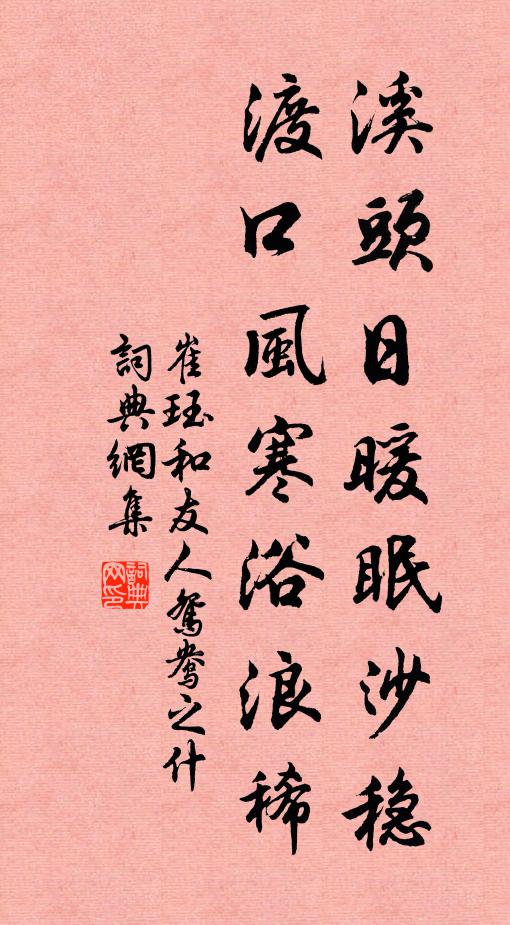 溪頭日暖眠沙穩
渡口風寒浴浪稀
崔珏和友人鴛鴦之什
詞典網集
詞典网印